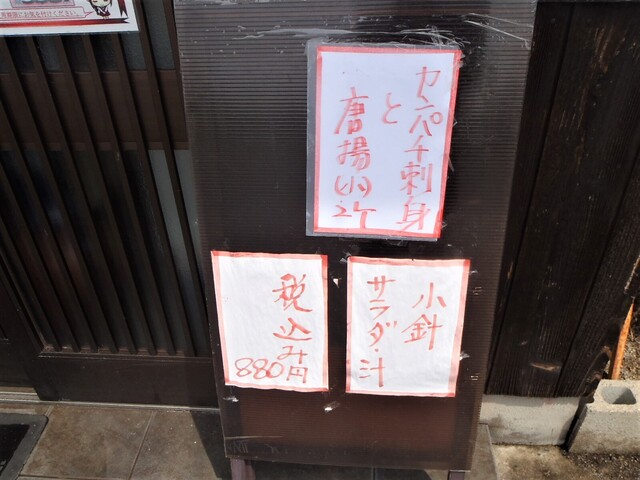 カンパチ刺身
と
唐揚(小)2ケ
小針
サラダ・汁
税込み
880円